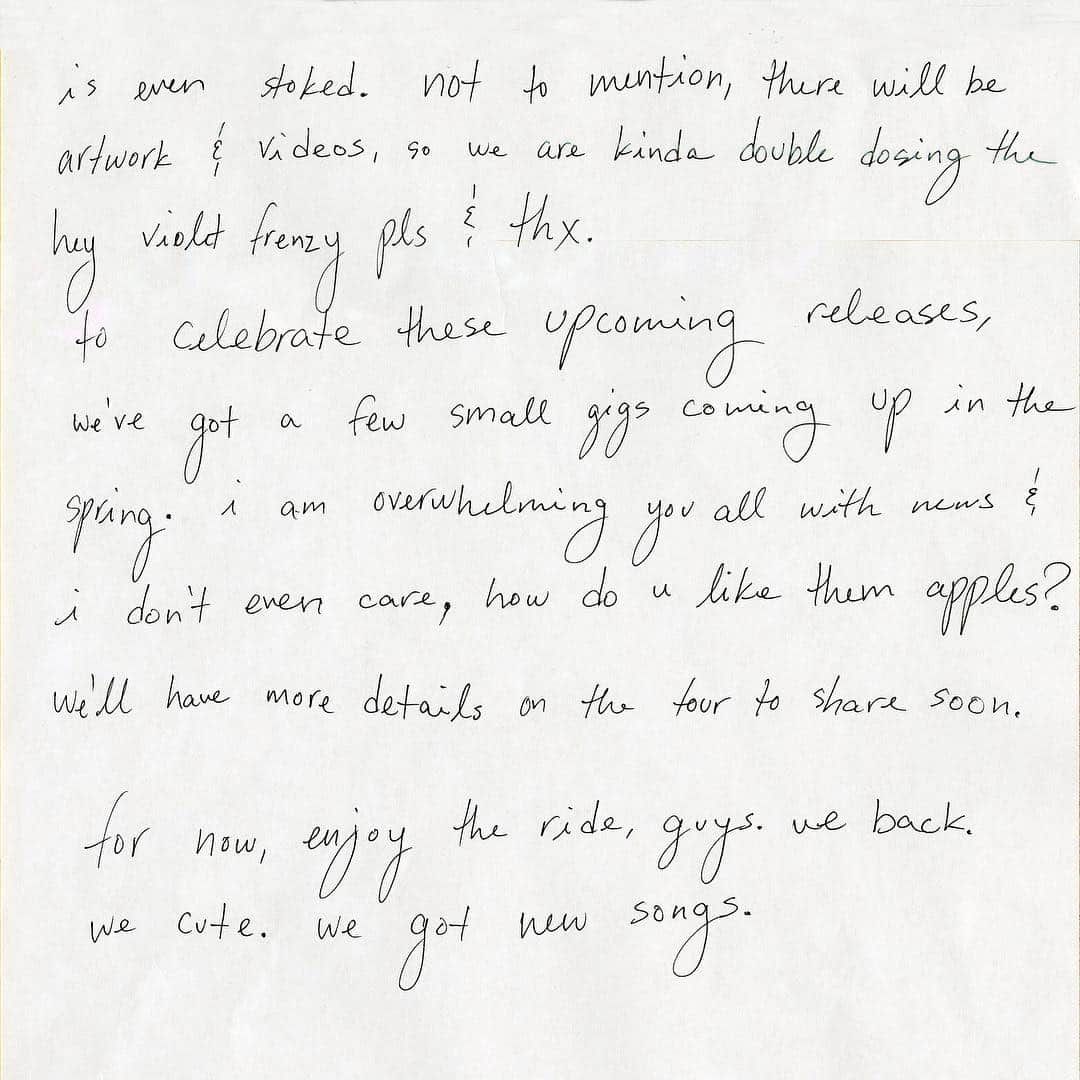 is even stoked. not to mention, there will be
artwork & videos, so we are kinda double dosing the
hey violet frenzy pls & thx.
to celebrate these upcoming releases,
we've got a few small gigs coming up in the
spring. i am overwhelming you all with news &
i don't even care, how do u like them apples?
we'll have more details on the tour to share soon.
for now, enjoy the ride, guys. we back.
we cute. we got new songs.